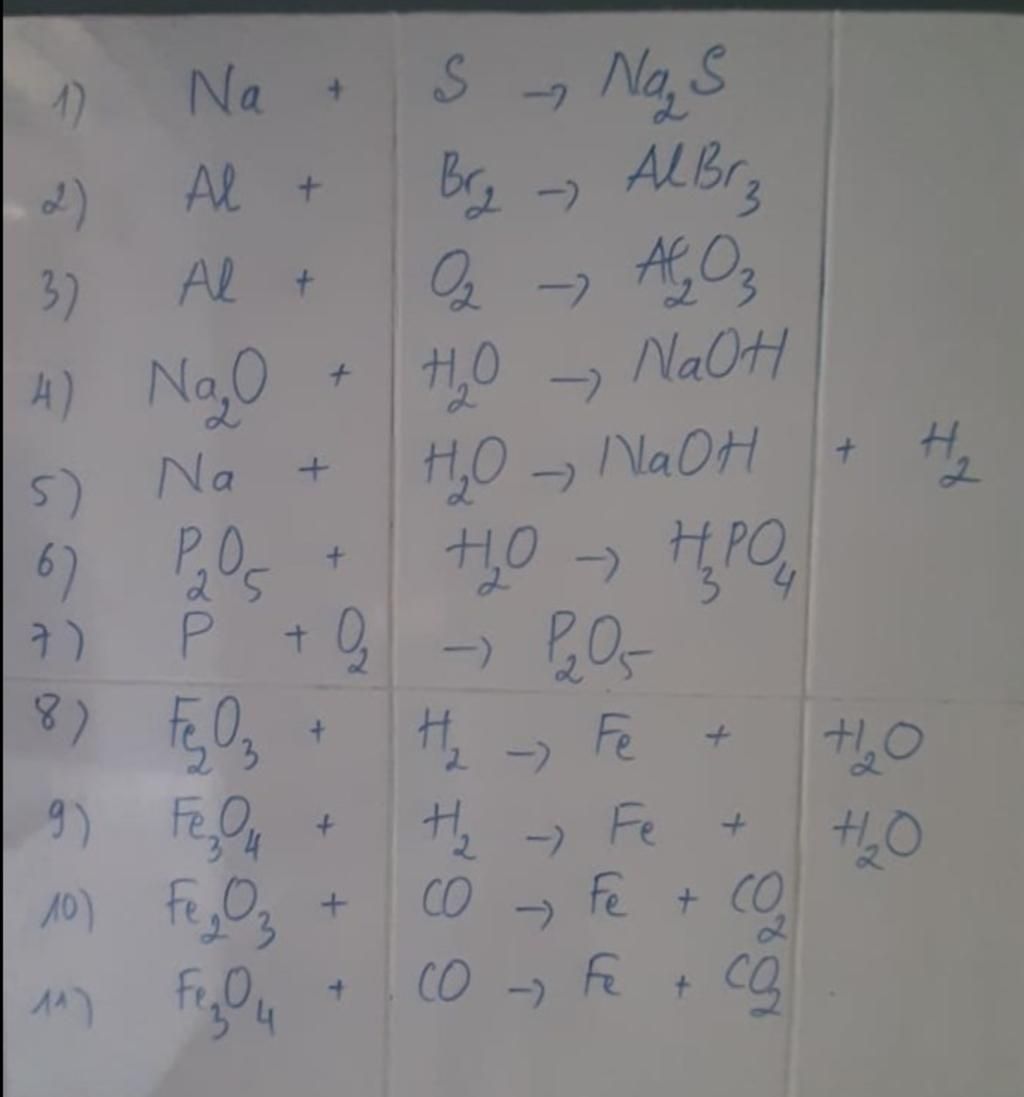 1) Na + S → Na₂S
2) Al + Br₂ → AlBr₃
3) Al + O₂ → Al₂O₃
4) Na₂O + H₂O → NaOH
5) Na + H₂O → NaOH + H₂
6) P₂O₅ + H₂O → H₃PO₄
7) P + O₂ → P₂O₅
8) Fe₂O₃ + H₂ → Fe + H₂O
9) Fe₃O₄ + H₂ → Fe + H₂O
10) Fe₂O₃ + CO → Fe + CO₂
11) Fe₃O₄ + CO → Fe + CO₂